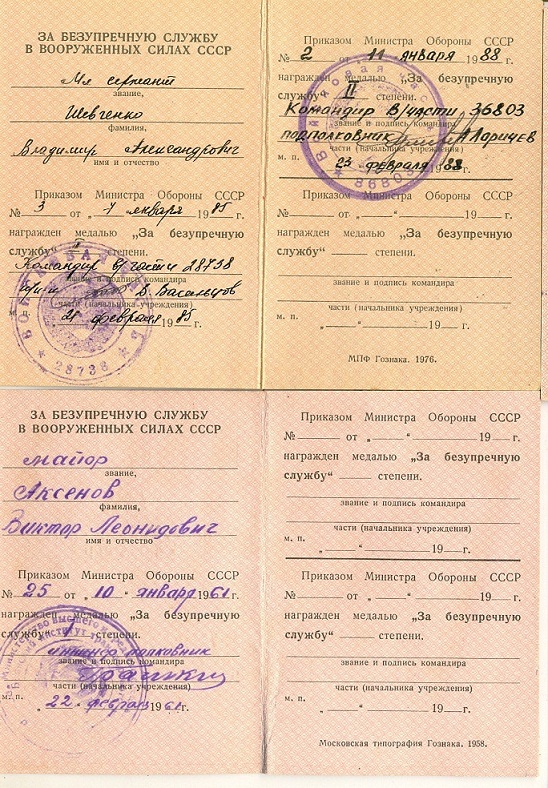 ЗА БЕЗУПРЕЧНУЮ СЛУЖБУ
В ВООРУЖЕННЫХ СИЛАХ СССР
Мл сержант
звание,
Шевченко
фамилия,
Владимир Александрович
имя и отчество
Приказом Министра Обороны СССР
№ 3 от „ 7 января 1985 г.
награжден медалью „За безупречную
службу“ II степени.
Командир в/части 28738
звание и подпись командира
В. Васильцов
части (начальника учреждения)
м. п. „ 21 февраля 1985 г.
28738
Приказом Министра Обороны СССР
№ 2 от 11 января 1988 г.
награжден медалью „За безупречную
службу“ II степени.
Командир В/части 36803
звание и подпись командира
подполковник А Ларичев
части (начальника учреждения)
м. п. 23 февраля 1988 г.
Приказом Министра Обороны СССР
№ от „ “ 19 г.
награжден медалью „За безупречную
службу“ степени.
звание и подпись командира
части (начальника учреждения)
м. п. „ “ 19 г.
МПФ Гознака. 1976.
ЗА БЕЗУПРЕЧНУЮ СЛУЖБУ
В ВООРУЖЕННЫХ СИЛАХ СССР
майор
звание,
Аксенов
фамилия,
Виктор Леонидович
имя и отчество
Приказом Министра Обороны СССР
№ 25 от „ 10 “ января 1961 г.
награжден медалью „За безупречную
службу“ I степени.
инженер полковник
звание и подпись командира
части (начальника учреждения)
м. п. „ 22 “ февраля 1961 г.
Приказом Министра Обороны СССР
№ от „ “ 19 г.
награжден медалью „За безупречную
службу“ степени.
звание и подпись командира
части (начальника учреждения)
м. п. „ “ 19 г.
Приказом Министра Обороны СССР
№ от „ “ 19 г.
награжден медалью „За безупречную
службу“ степени.
звание и подпись командира
части (начальника учреждения)
м. п. „ “ 19 г.
Московская типография Гознака. 1958.